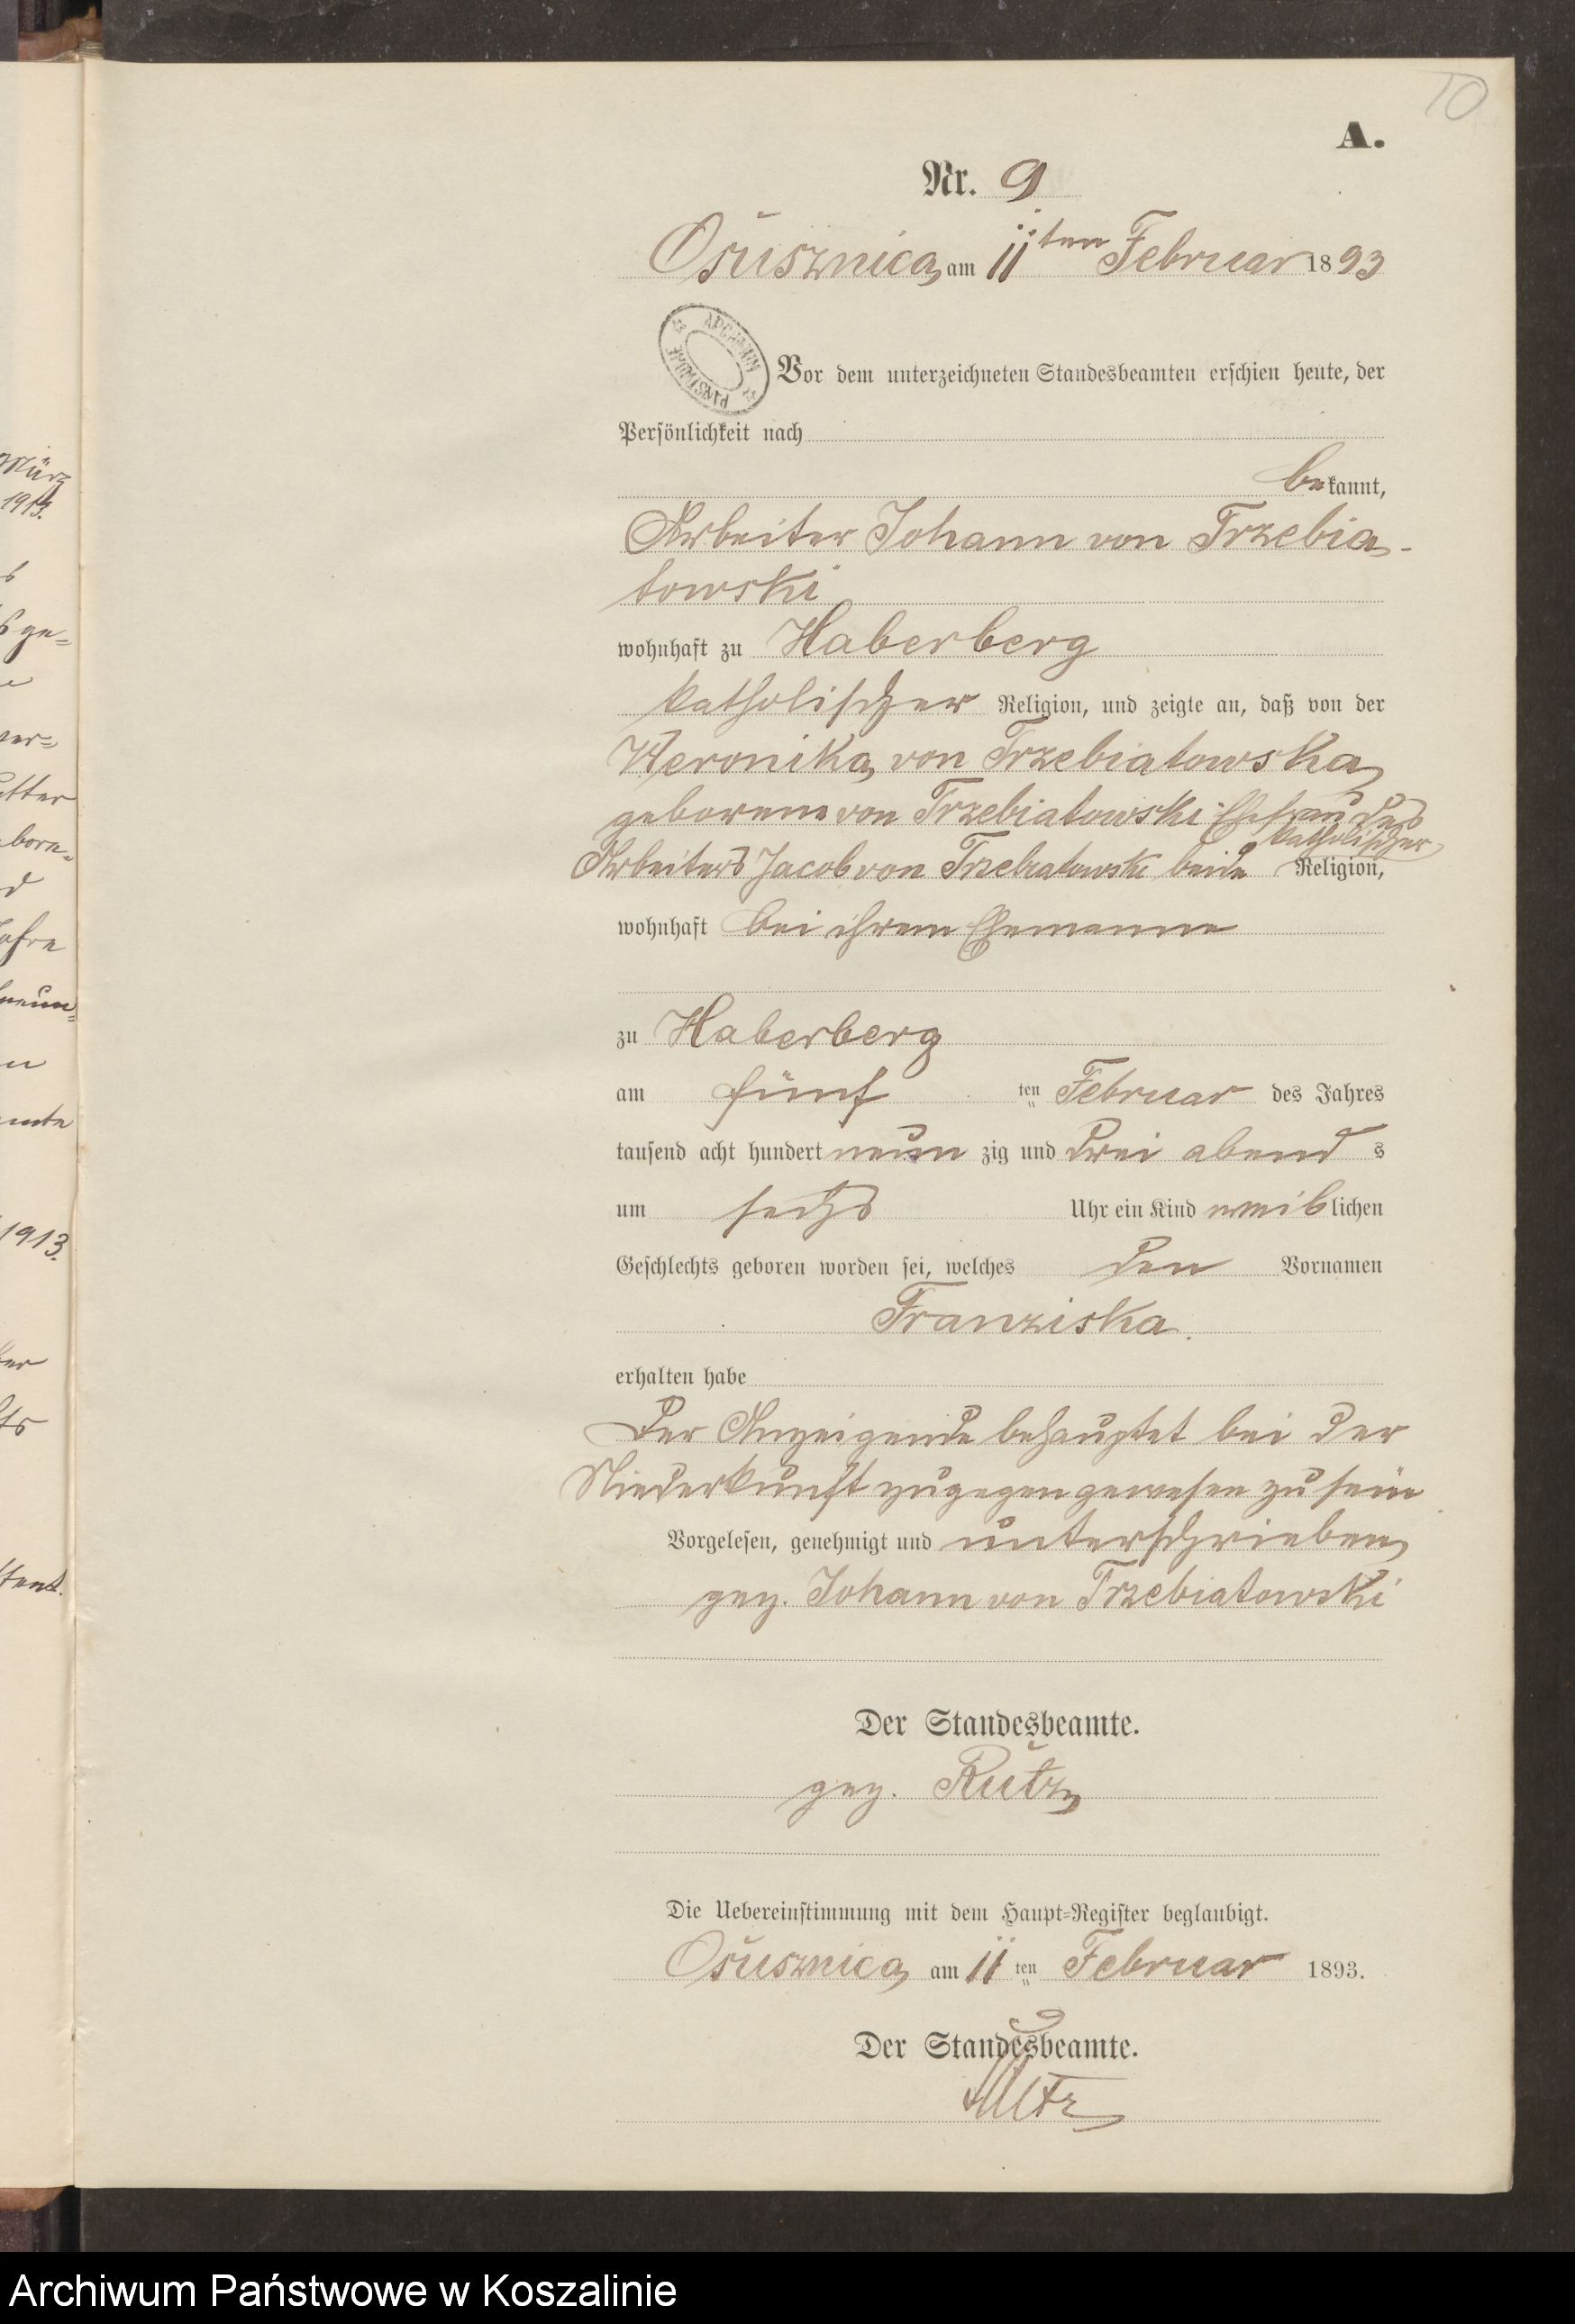 10
A.
Nr. 9
Osusznica am 11ten Februar 1893
Vor dem unterzeichneten Standesbeamten erschien heute, der
Persönlichkeit nach
bekannt,
Arbeiter Johann von Trzebia-
towski
wohnhaft zu Haberberg
katholischer Religion, und zeigte an, daß von der
Weronika von Trzebiatowska
geborene von Trzebiatowski Ehefrau des
Arbeiters Jacob von Trzebiatowski beide katholischer Religion,
wohnhaft bei ihrem Ehemanne
zu Haberberg
am fünf ten Februar des Jahres
tausend acht hundert neun zig und drei abend s
um sechs Uhr ein Kind weiblichen
Geschlechts geboren worden sei, welches den Vornamen
Franziska.
erhalten habe
Der Anzeigende behauptet bei der
Niederkunft zugegen gewesen zu sein
Vorgelesen, genehmigt und unterschrieben
gez. Johann von Trzebiatowski
Der Standesbeamte.
gez. Rutz
Die Uebereinstimmung mit dem Haupt-Register beglaubigt.
Osusznica am 11 ten Februar 1893.
Der Standesbeamte.
Rutz
März
1913.
1913.
Archiwum Państwowe w Koszalinie